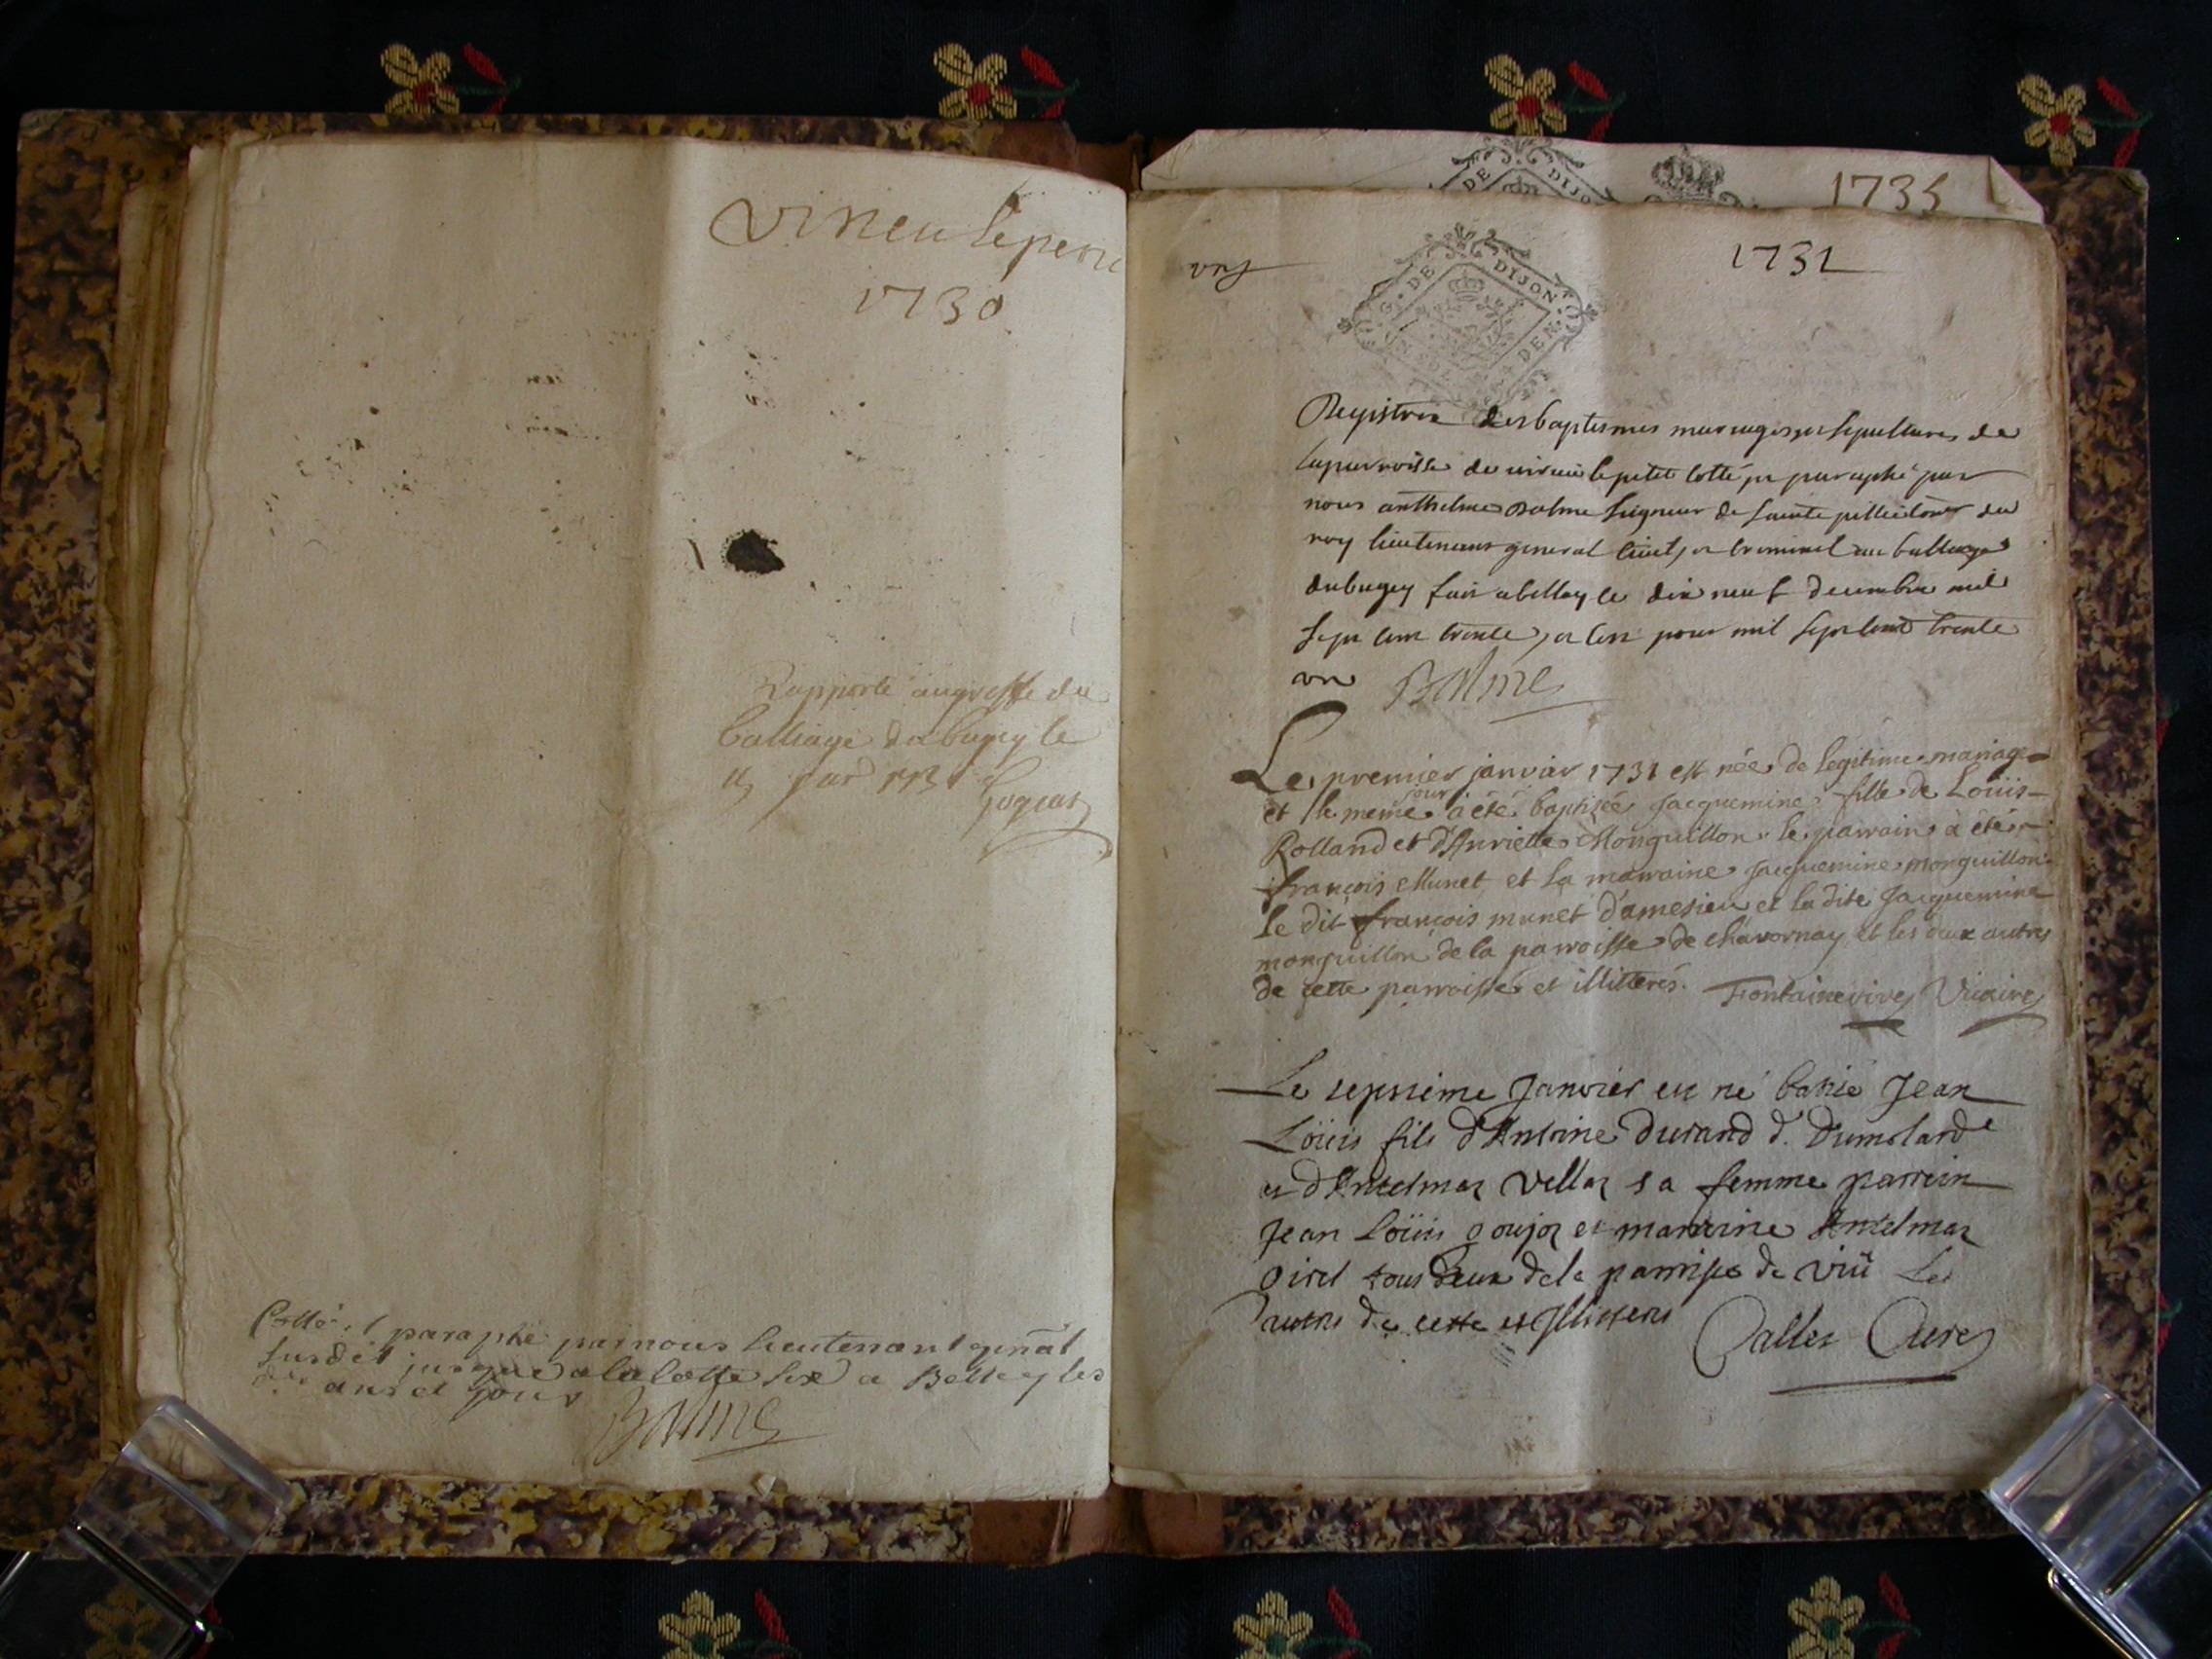 Virieu le petit
1730
Rapporté au greffe du
balliage du bugey le
Cotté et paraphé par nous lieutenant genal
susdit jusque a la cotte six a Belley les
an et jour
Balme
1735
DE DIJON
1731
G. DE DIJON
DEN.
Registres des baptesmes mariages et sepultures de
la parroisse de virieu le petit cotté et paraphé par
nous anthelme Balme seigneur de sainte jullie coner du
roy lieutenant general civil et criminel au balliage
du bugey fait a belley le dix neuf decembre mil
sept cent trente, et ce pour mil sept cent trente
un Balme
Le premier janvier 1731 est née de legitime mariage
et le meme jour à été baptizée Jacquemine fille de Loüis
Rolland et d'Anriette Monguillon le parrain à été
françois Munet et la marraine Jacquemine monguillon
le dit françois munet d'amesieu et la dite Jacquemine
monguillon de la parroisse de chavornay et les deux autres
de cette parroisse et illitterés. Fontainevive Vicaire
Le septieme Janvier est né batisé Jean
Loüis fils d'Antoine Durand d. Dumolard
et d'Antelmaz Vellaz sa femme parrein
Jean Loüis goujoz et marreine Antelmaz
tous deux de la parroisse de Viü Les
autres de cette et Illitterés Callet Curé